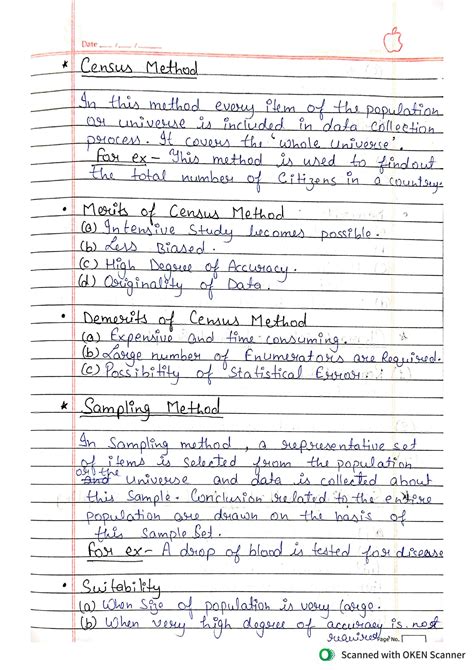 Date ___/___/___
* Census Method
In this method every item of the population
or universe is included in data collection
process. It covers the 'whole universe'.
For ex - This method is used to findout
the total number of Citizens in a country.
• Merits of Census Method
(a) Intensive Study becomes possible.
(b) Less Biased.
(c) High Degree of Accuracy.
(d) Originality of Data.
• Demerits of Census Method
(a) Expensive and time consuming.
(b) Large number of Enumerators are Required.
(c) Possibility of Statistical Error.
* Sampling Method
In Sampling method, a representative set
of items is selected from the population
or the universe and data is collected about
this Sample. Conclusion related to the entire
population are drawn on the basis of
this Sample Set.
For ex - A drop of blood is tested for disease
• Suitability
(a) When Size of population is very large.
(b) When very high degree of accuracy is not
required
Page No.
Scanned with OKEN Scanner